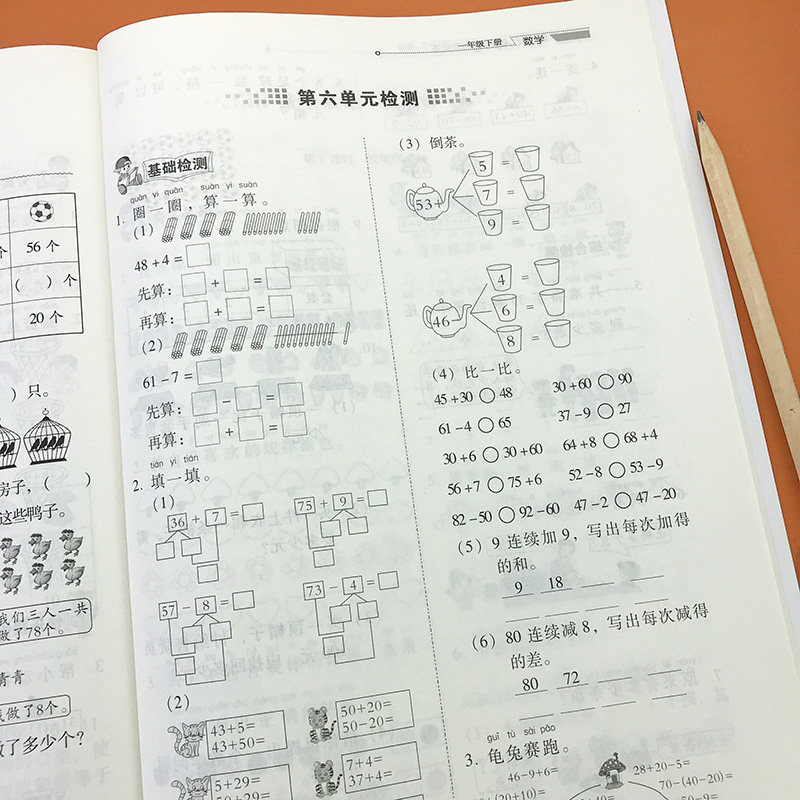 56 个
( ) 个
20 个
) 只。
房子，( )
这些鸭子。
我们三人一共
做了78个。
青青
我做了8个。
做了多少个?
一年级下册 数学
第六单元检测
基础检测
quān yi quān suàn yi suàn
1. 圈一圈，算一算。
(1)
48+4=
先算： + =
再算： + =
(2)
61-7=
先算： - =
再算： + =
tián yi tián
2. 填一填。
(1)
36 + 7 =
75 + 9 =
57 - 8 =
73 - 4 =
(2)
43+5=
43+50=
50+20=
50-20=
5+29=
50+29=
7+4=
37+4=
(3) 倒茶。
53+
5 =
7 =
9 =
46-
4 =
6 =
8 =
(4) 比一比。
45+30○48 30+60○90
61-4○65 37-9○27
30+6○30+60 64+8○68+4
56+7○75+6 52-8○53-9
82-50○92-60 47-2○47-20
(5) 9 连续加 9，写出每次加得
的和。
9 18
(6) 80 连续减 8，写出每次减得
的差。
80 72
guī tù sài pǎo
3. 龟兔赛跑。
46-9+6= 28+20-5=
70-(40-20)=